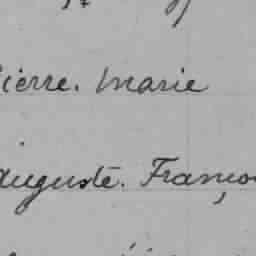 Pierre. Marie
Auguste. Franço